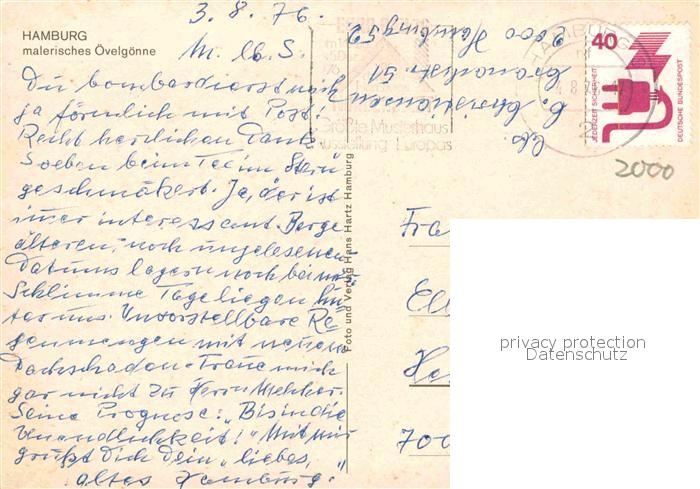 HAMBURG
malerisches Övelgönne
3.8.76.
M. lb. S.
Du bombardierst mich
ja förmlich mit Post!
Recht herzlichen Dank.
Soeben beim Tee im "Stern"
geschmökert. Ja, der ist
immer interessant. Berge
älteren, noch ungelesenen
Datums lagern noch bei mir.
Schlimme Tage liegen hin-
ter uns. Unvorstellbare Re-
genmengen mit neuem
Dachschaden. Traue mich
gar nicht zu Herrn
Seine Prognose: "Bis in die
Unendlichkeit!" Mit mir
grüßt Dich Dein "liebes,
altes Hamburg."
Foto und Verlag Hans Hartz Hamburg
2000 Hamburg 52
51
Größte Musterhaus
Ausstellung Europas
HAMBURG
40
JEDERZEIT SICHERHEIT
DEUTSCHE BUNDESPOST
2000
Fra
Ell
He
700
privacy protection
Datenschutz